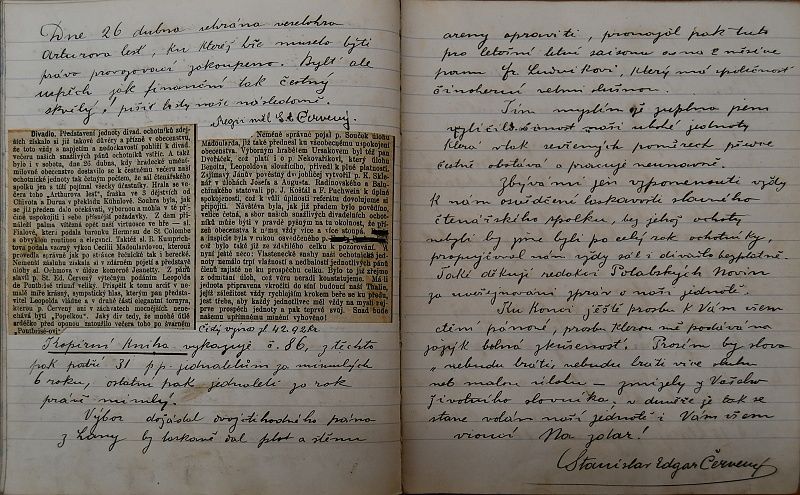 Dne 26 dubna sehrána veselohra
Arturova lest, ku které bře muselo býti
právo provozovací zakoupeno. Bylť ale
úspěch jak finanční tak čestný
skvělý, píšíť listy naše následovně.
Regii měl Ed. Červený.
Divadlo. Představení jednoty divad. ochotníků zdej-
ších získalo si již takové důvěry a přízně v obecenstvu,
že toto vždy s napjetím a nedočkavostí pohlíží k divad.
večeru našich snaživých pánů ochotníků vstříc. A také
bylo v sobotu, dne 26. dubna, kdy hradecké umění-
milovné obecenstvo dostavilo se k čestnému večeru naší
ochotnické jednoty tak četným počtem, že sál čtenářského
spolku jen s tíží pojímal všecky účastníky. Hrála se ve-
selohra toho "Arthurova lest", fraška ve 3 dějstvích od
Chivota a Durua v překladu Kühnlově. Souhra byla, jak
se již předem dalo očekávati, výbornou a mohla v té pří-
čině uspokojiti i sebe přísnější požadavky. Z dam při-
náleží palma vítězná opět naší virtuosce ve hře — sl.
Fialové, která podala svoji Herminu de St Colombe
s obvyklou routinou a elegancí. Taktéž sl. R. Kumprich-
tova podala vzorný výkon Cecilií Madoulardovou, kterouž
provedla správně jak po stránce lyrické tak i herecké.
Nemenší zásluhu získala si v zdárném pojetí a představě
úlohy sl. Ochmova v úloze komorné Jeanetty. Z pánů
slavil p. St. Ed. Červený výtečným podáním Leopolda
de Pontbisé triumf veliký. Přispělť k tomu arciť v ne-
malé míře krásný, sympatický hlas, kterým pan předsta-
vitel Leopolda vládne a v druhé části elegantní tornyr,
kterou p. Červený ani v záchvatech mocnějších nenechává
býti "Papelkou". Jaký div tedy, že mnohé útlé
srdéčko před oponou zatoužilo večeru toho po švarném
„Pontbisé-ovi“.
Neméně správně pojal p. Souček úlohu
Madoularda, jíž také předned ku všeobecnému uspokojení
obecenstva. Výborným hraběem Ursakovem byl též pan
Dvořáček, což platí i o p. Nekovaříkovi, který úlohu
Repota, Leopoldova sloužícího, přivedl k plné platnosti.
Zejímavý Jánův pověstný dvojblíčej vytvořil p. K. Skle-
nář v úlohách Josefa a Augusta. Radinovského a Balu-
chinského sestavovali pp. J. Košťál a F. Pachwein k úplné
spokojenosti, což k vůli úplnosti referátu dovolujeme si
připojiti. Návštěva byla, jak již předem bylo pověděno,
velice četná, a sbor našich snaživých divadelních ochot-
níků může býti v pravdě pyšným na tu okolnost, že při-
zeň obecenstva k němu vždy více a více stoupá,
a inspiće byla v rukou osvědčeného p.
což bylo také již ze zdravého celku k pozorování.
Nyní ještě něco: Vlastenecké snahy naší ochotnické jed-
noty nemálo trpí vlastností a nedbalostí jednotlivých pánů
členů zajisté ne ku prospěchu celku. Bylo to již zřejmo
z odmítání úloh, což s nevolí konstatujeme. Má-li
jednota připravena vkročiti do síní budoucí naší Thalie,
jejíž záležitost vždy rychlejším krokem béře se ku předu,
jest třeba, aby každý jednotlivec měl vždy na mysli nej-
prve prospěch jednoty a pak teprvé svůj. Snad bude
našemu upřímnému mínění vyhověno!
Čistý výnos zl 42.92kr.
Kopírní kniha vykazuje č. 86, z těchto
pak patří 31 p.p. jednatelům za minulých
6 roku, ostatní pak jednateli za rok
právě minulý.
Výbor dožádal dvojctihodného pána
z Lány by laskavě dal plot a stěnu
areny opraviti, pronajal pak tuto
pro letošní letní saisonu as na 2 měsíce
panu Fr. Ludvíkovi, který má společnost
činoherní velmi slušnou.
Tím myslím že úplna jsem
vylíčil činnost naší ubohé jednoty
která vlak stísněných poměrech přece
čestně obstává a pracuje neunavně.
Zbývá mi jen vzpomenouti vždy
k nám osvědčené laskavosti slavného
čtenářského spolku, bez jehož ochoty
nebyli by jsme byli po celý rok ochotníky,
propůjčoval nám vždy sál i divadlo bezplatně.
Také děkuji redakci Polabských Novin
za uveřejňování zpráv o naší jednotě.
Ku konci ještě prosbu k Vám všem
ctění pánové, prosbu kterou mě podává na
jazyk bolná zkušenost. Prosím by slova
„nebudu hráti, nebudu hráti více sluhu
neb malou úlohu — zmizely z Vašeho
životního slovníka, a doufaje že tak se
stane volám naší jednotě i Vám všem
vroucí Na zdar!
Stanislav Edgar Červený